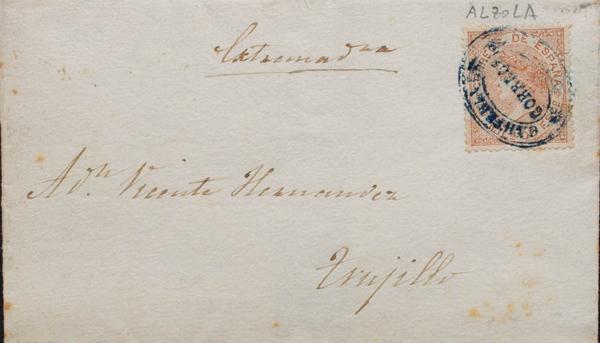 ALZOLA
Extremadura
DE ESPAÑA
CORREOS
A Dn Vicente Hernandez
Trujillo